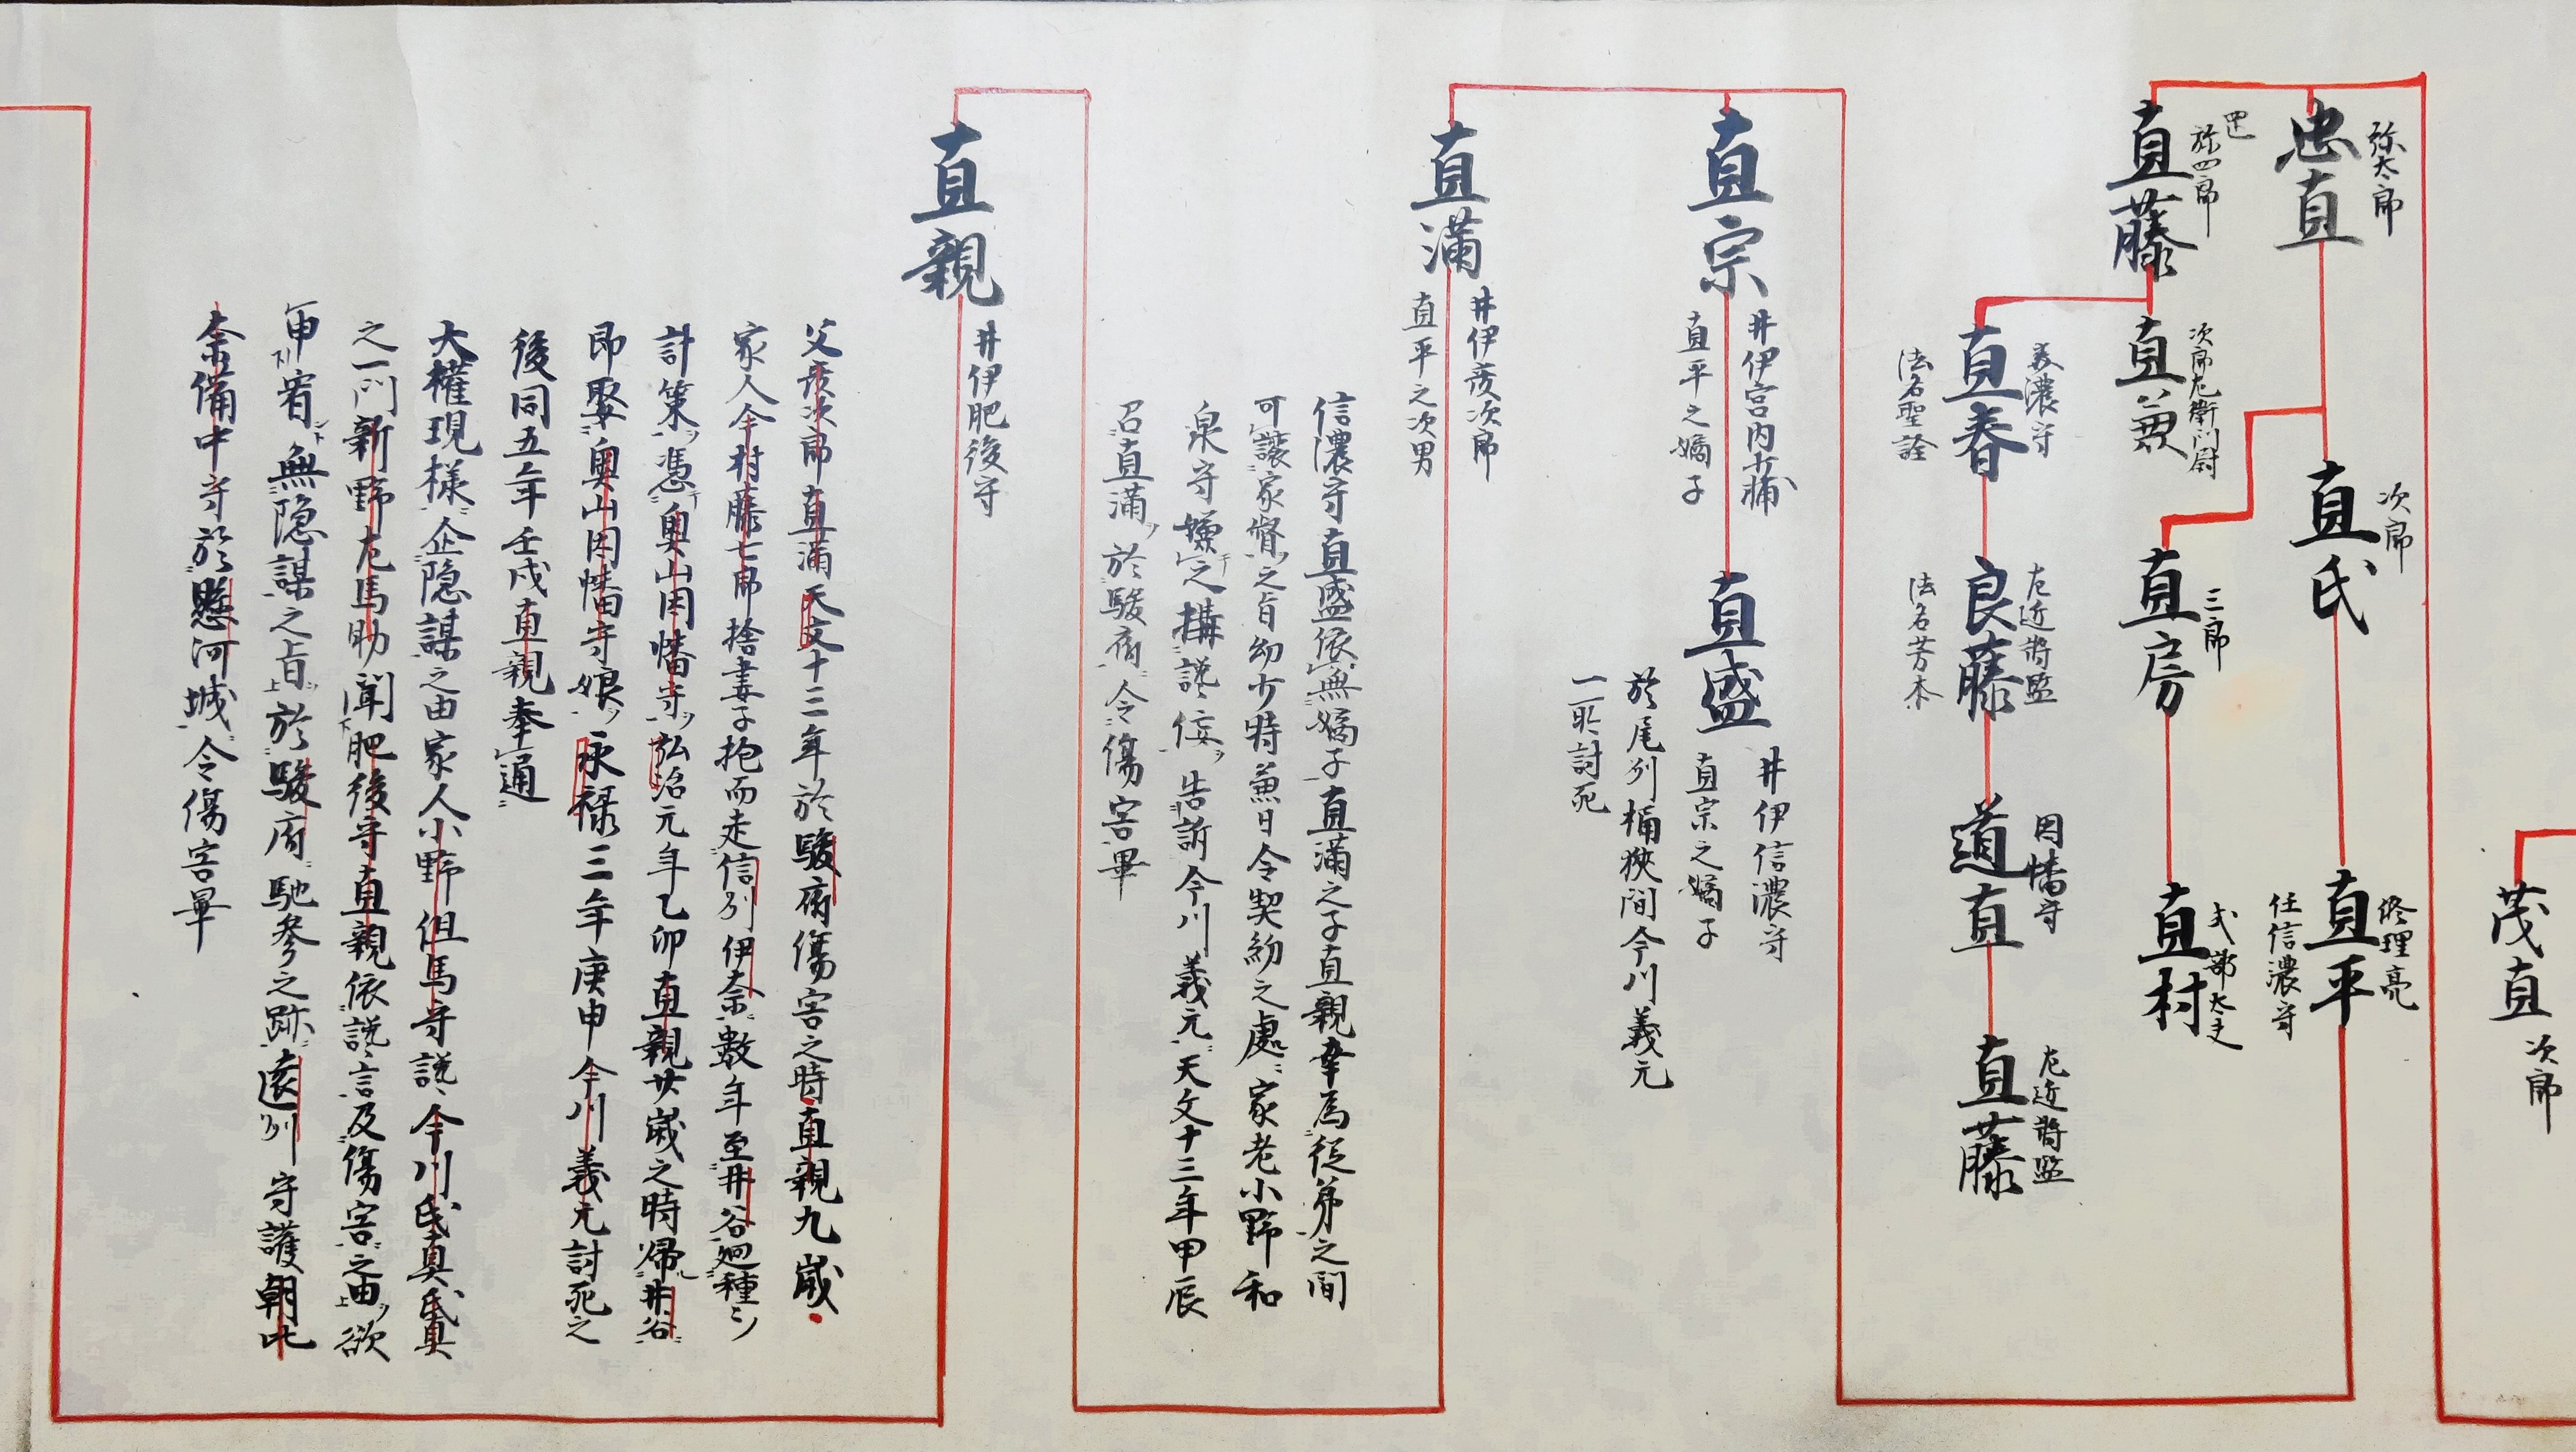 茂直
次郎
弥太郎
忠直
次郎
直氏
修理亮
直平
任信濃守
三郎
直房
式部大夫
直村
弥四郎
直藤
次郎左衛門尉
直兼
美濃守
直春
法名聖詮
左近將監
良藤
法名芳本
因幡守
道直
左近將監
直藤
直宗
井伊宮内少輔
直平之嫡子
直盛
井伊信濃守
直宗之嫡子
於尾州桶狹間今川義元
一所討死
直滿
井伊彦次郎
直平之次男
信濃守直盛依無嫡子直滿之子直親幸為従弟之間
可讓家督之旨幼少時兼日令契約之處家老小野和
泉守嫌之構讒佞告訴今川義元天文十三年甲辰
召直滿於駿府令傷害畢
直親
井伊肥後守
父彦次郎直滿天文十三年於駿府傷害之時直親九歳
家人今村藤七郎捨妻子抱而走信州伊奈數年至井谷廻種々
計策憑奥山因幡守弘治元年乙卯直親廿歳之時帰井谷
即娶奥山因幡守娘永禄三年庚申今川義元討死之
後同五年壬戌直親奉通
大權現様企隠謀之由家人小野但馬守讒今川氏真氏真
之一門新野左馬助聞肥後守直親依讒言及傷害之由欲
申宥無隠謀之旨於駿府馳參之跡遠州守護朝比
奈備中守於懸河城令傷害畢